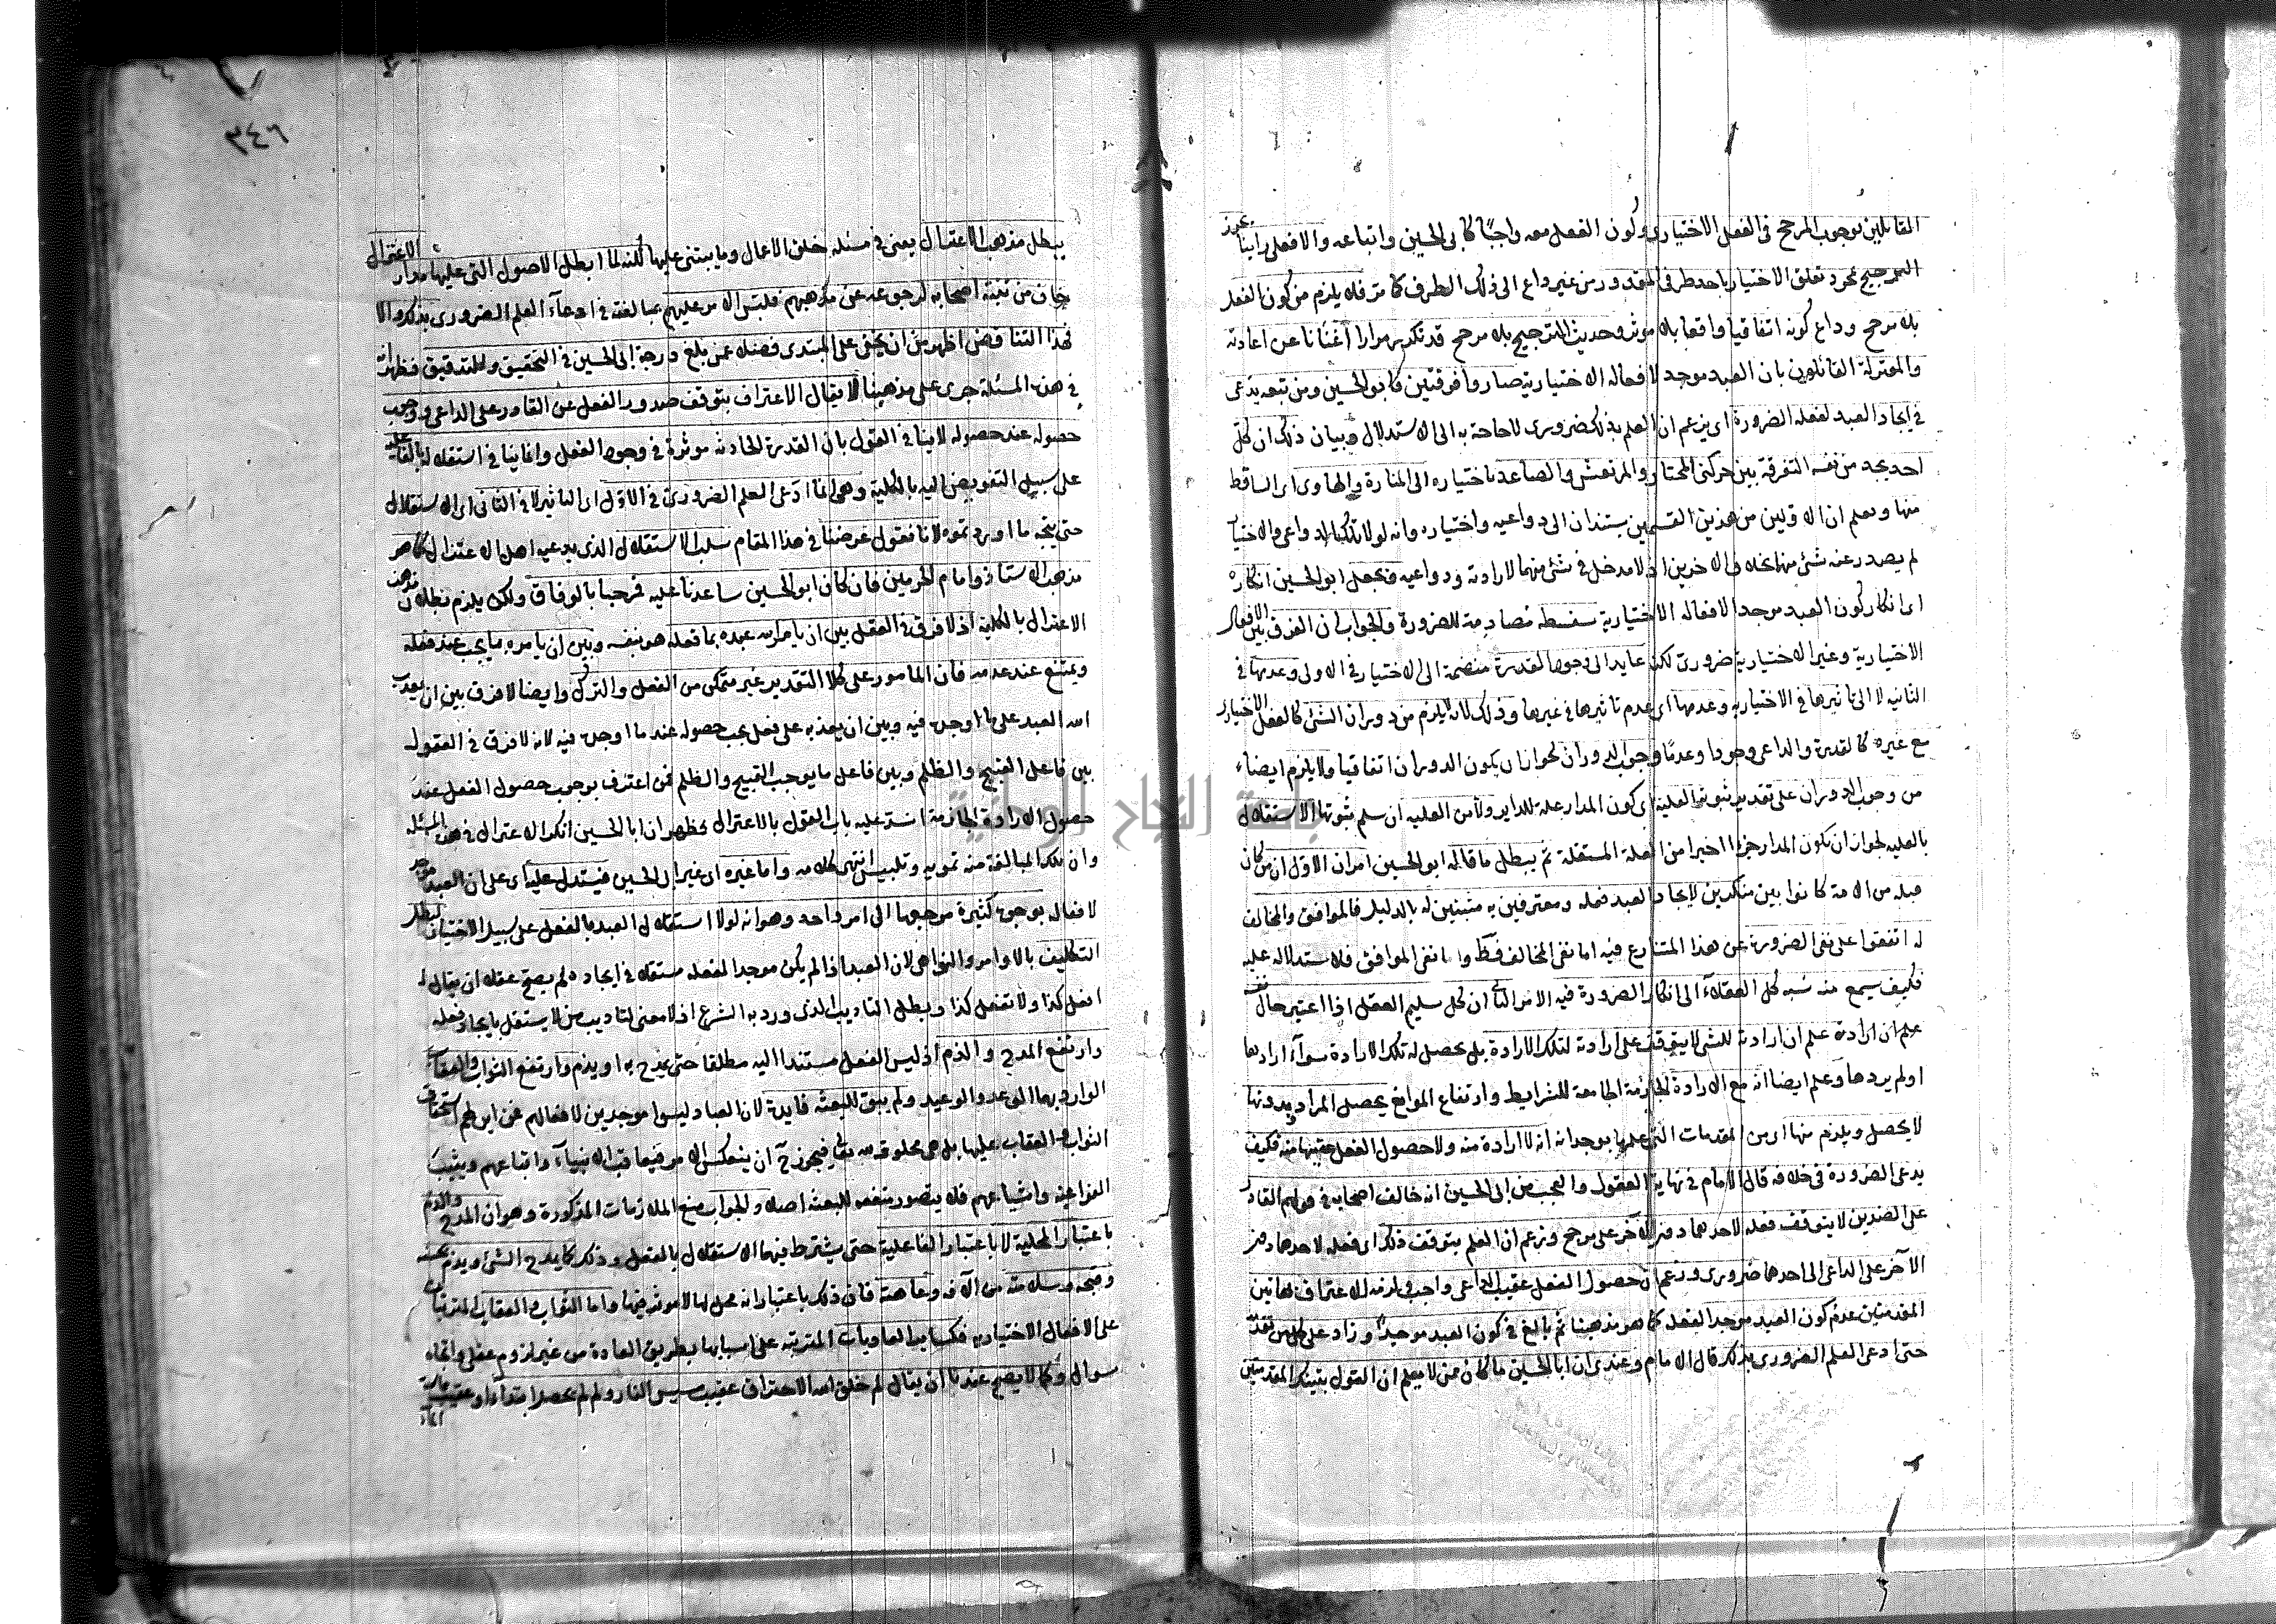 القائلين بوجوب المرجح فى الفعل الاختيارى وكون الفعل معه واجبا كابى الحسين واتباعه والا فعلى راينا يجوز
الترجيح بمجرد تعلق الاختيار باحد طرفى المقدور من غير داع الى ذلك الطرف كما مر فلا يلزم من كون الفعل
بلا مرجح وداع كونه اتفاقيا واقعا بلا موثر وحديث الترجيح بلا مرجح قد تكرر مرارا اغنانا عن اعادته
والمعتزلة القائلون بان العبد موجد لافعاله الاختيارية صاروا فرقتين فابو الحسين ومن تبعه يدعى
فى ايجاد العبد لفعله الضرورة اى يزعم ان العلم بذلك ضرورى لا حاجة به الى الاستدلال وبيان ذلك ان كل
احد يجد من نفسه التفرقة بين حركتى المختار والمرتعش والصاعد باختياره الى المنارة والهاوى اى الساقط
منها ويعلم ان الاولين من هذين القسمين يستندان الى دواعيه واختياره وانه لولا تلك الدواعى والاختيار
لم يصدر عنه شئ منهما بخلاف الاخرين اذ لا مدخل فى شئ منهما لارادته ودواعيه ويجعل ابو الحسين انكاره
اى انكار كون العبد موجدا لافعاله الاختيارية سفسطة مصادمة للضرورة والجواب ان الفرق بين الافعال
الاختيارية وغير الاختيارية ضرورى لكنه عايد الى وجود القدرة منضمة الى الاختيار فى الاولى وعدمها فى
الثانية لا الى تاثيرها فى الاختيارية وعدمها اى عدم تاثيرها فى غيرها وذلك لانه لا يلزم من دوران الشئ كالفعل الاختيارى
مع غيره كالقدرة والداعى وجودا وعدما وجوب الدوران لجواز ان يكون الدوران اتفاقيا ولا يلزم ايضا
من وجوب الدوران على تقدير ثبوته العلية اى كون المدار علة للداير ولا من العلية ان سلم ثبوتها الاستقلال
بالعلية لجواز ان يكون المدار جزءا اخيرا من العلة المستقلة ثم يبطل ما قاله ابو الحسين امران الاول ان من كان
قبله من الامة كانوا بين منكرين لايجاد العبد فعله ومعترفين به مثبتين له بالدليل فالموافق والمخالف
له اتفقوا على نفى الضرورة عن هذا المتنازع فيه اما نفى المخالف فظ واما نفى الموافق فلاستدلاله عليه
فكيف يسمع منه نسبة كل العقلاء الى انكار الضرورة فيه الامر الثانى ان كل سليم العقل اذا اعتبر حال نفسه
علم ان ارادته للشئ لا يتوقف على ارادته لتلك الارادة بل يحصل له تلك الارادة سواء ارادها
او لم يردها وعلم ايضا انه مع الارادة الجازمة الجامعة للشرايط وارتفاع الموانع يحصل المراد وبدونها
لا يحصل ويلزم منها اى من المقدمات التى علمها بوجدانه انه لا ارادة منه ولا حصول الفعل عقيبها منه فكيف
يدعى الضرورة فى خلافه قال الامام فى نهاية العقول والعجب من ابى الحسين انه خالف اصحابه فى قولهم القادر
على الضدين لا يتوقف فعله لاحدهما دون الاخر على مرجح وزعم ان العلم بتوقف ذلك اى فعله لاحدهما دون
الآخر على الداعى الى احدهما ضرورى وزعم ان حصول الفعل عقيب الداعى واجب ولزمه الاعتراف لهاتين
المقدمتين عدم كون العبد موجدا لفعله كما هو مذهبنا ثم بالغ فى كون العبد موجدا وزاد على كل من تقدمه
حتى ادعى العلم الضرورى بذلك قال الامام وعندى ان ابا الحسين ما كان ممن لا يعلم ان القول بتينك المقدمتين
٣٤٦
يبطل مذهب الاعتزال يعنى فى مسئلة خلق الاعمال وما يبتنى عليها لكنه لما ابطل الاصول التى عليها مدار الاعتزال
خاف من تنبه اصحابه لرجوعه عن مذهبهم فلبس الامر عليهم بمبالغته فى ادعاء العلم الضرورى بذلك والا
فهذا التناقض اظهر من ان يخفى على المبتدى فضلا عمن بلغ درجة ابى الحسين فى التحقيق والتدقيق فظهر انه
فى هذه المسئلة جرى على مذهبنا لا يقال الاعتراف بتوقف صدور الفعل عن القادر على الداعى ووجوب
حصوله عند حصوله لا ينافى القول بان القدرة الحادثة موثرة فى وجود الفعل وانما ينافى استقلاله بالفاعلية
على سبيل التفويض اليه بالكلية وهو انما ادعى العلم الضرورى فى الاول اى التاثير لا فى الثانى اى الاستقلال
حتى يتجه ما اوردتموه لانا نقول غرضنا فى هذا المقام سلب الاستقلال الذى يدعيه اهل الاعتزال كما هو
مذهب الاستاذ وامام الحرمين فان كان ابو الحسين ساعدنا عليه فمرحبا بالوفاق ولكن يلزم بطلان مذهب
الاعتزال بالكلية اذ لا فرق فى العقل بين ان يامر الله عبده بما فعله هو بنفسه وبين ان يامره بما يجب عند فعله
ويمتنع عند عدمه فان المامور على كلا التقديرين غير متمكن من الفعل والترك وايضا لا فرق بين ان يعذب
الله العبد على ما اوجده فيه وبين ان يعذبه على فعل يجب حصوله عند ما اوجده فيه لانه لا فرق فى العقول
بين فاعل القبيح والظلم وبين فاعل ما يوجب القبيح والظلم فمن اعترف بوجوب حصول الفعل عند
حصول الارادة الجازمة انسد عليه باب القول بالاعتزال فظهر ان ابا الحسين انكر الاعتزال فى هذه المسئلة
وان تلك المبالغة منه تمويه وتلبيس انتهى كلامه واما غيره اى غير ابى الحسين فيستدل عليه اى على ان العبد موجد
لافعاله بوجوه كثيرة مرجعها الى امر واحد وهو انه لولا استقلال العبد بالفعل على سبيل الاختيار لبطل
التكليف بالاوامر والنواهى لان العبد اذا لم يكن موجدا لفعله مستقلا فى ايجاده لم يصح عقلا ان يقال له
افعل كذا ولا تفعل كذا وبطل التاديب الذى ورد به الشرع اذ لا معنى لتاديب من لا يستقل بايجاد فعله
وارتفع المدح والذم اذ ليس الفعل مستندا اليه مطلقا حتى يمدح به او يذم وارتفع الثواب والعقاب
الوارد بهما الوعد والوعيد ولم يبق للبعثة فايدة لان العباد ليسوا موجدين لافعالهم فمن اين لهم استحقاق
الثواب والعقاب عليها بل هى مخلوقة لله تعالى فيجوز ح ان ينعكس الامر فيعاقب الانبياء واتباعهم ويثيب
الفراعنة واشياعهم فلا يتصور منفعة للبعثة اصلا والجواب منع الملازمات المذكورة وهو ان المدح والذم
باعتبار المحلية لا باعتبار الفاعلية حتى يشترط فيهما الاستقلال بالفعل وذلك كما يمدح الشئ ويذم بحسنه
وقبحه وسلامته من الآفة وعاهته فان ذلك باعتبار انه محل لها لا موثر فيها واما الثواب والعقاب المترتبان
على الافعال الاختيارية فكساير العاديات المترتبة على اسبابها بطريق العادة من غير لزوم عقلى واتجاه
سوال وكما لا يصح عندنا ان يقال لم خلق الله الاحتراق عقيب مسيس النار ولم لم يحصل ابتداء او عقيب مماسة
الماء